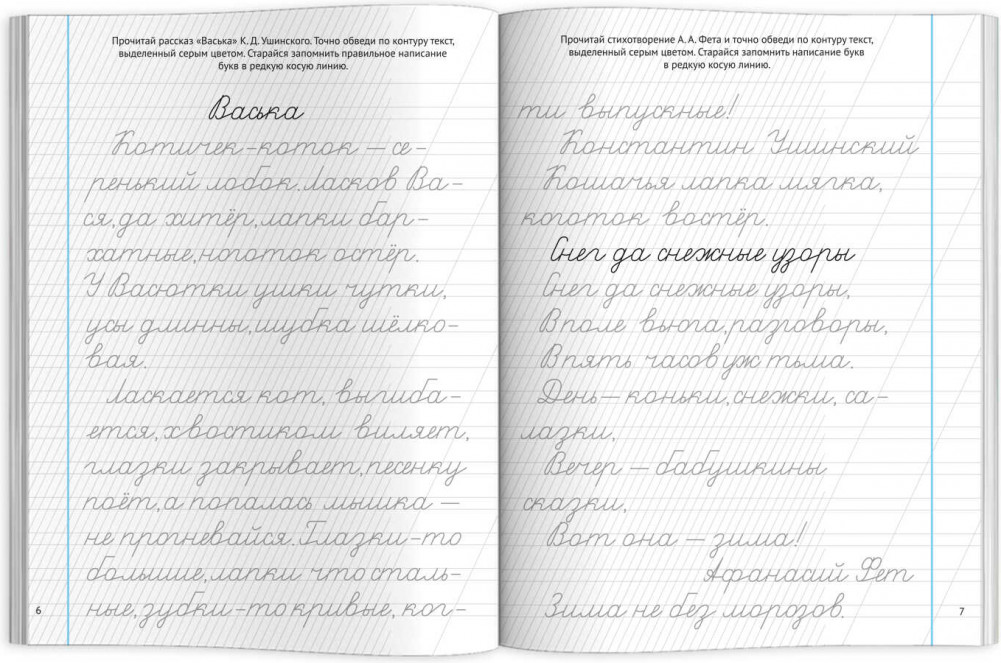 Прочитай рассказ «Васька» К. Д. Ушинского. Точно обведи по контуру текст,
выделенный серым цветом. Старайся запомнить правильное написание
букв в редкую косую линию.
Васька
Котичек-коток — се-
ренький лобок. Ласков Ва-
ся, да хитёр, лапки бар-
хатные, ноготок остёр.
У Васютки ушки чутки,
усы длинны, шубка шёлко-
вая.
Ласкается кот, выгиба-
ется, хвостиком виляет,
глазки закрывает, песенку
поёт, а попалась мышка —
не прогневайся. Глазки-то
большие, лапки что сталь-
ные, зубки-то кривые, ког-
6
Прочитай стихотворение А. А. Фета и точно обведи по контуру текст,
выделенный серым цветом. Старайся запомнить написание букв
в редкую косую линию.
ти выпускные!
Константин Ушинский
Кошачья лапка мягка,
коготок востёр.
Снег да снежные узоры
Снег да снежные узоры,
В поле вьюга, разговоры,
В пять часов уж тьма.
День — коньки, снежки, са-
лазки,
Вечер — бабушкины
сказки,
Вот она — зима!
Афанасий Фет
Зима не без морозов.
7